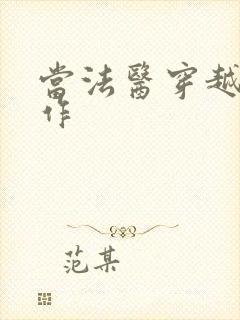 當法醫穿越
作
范某